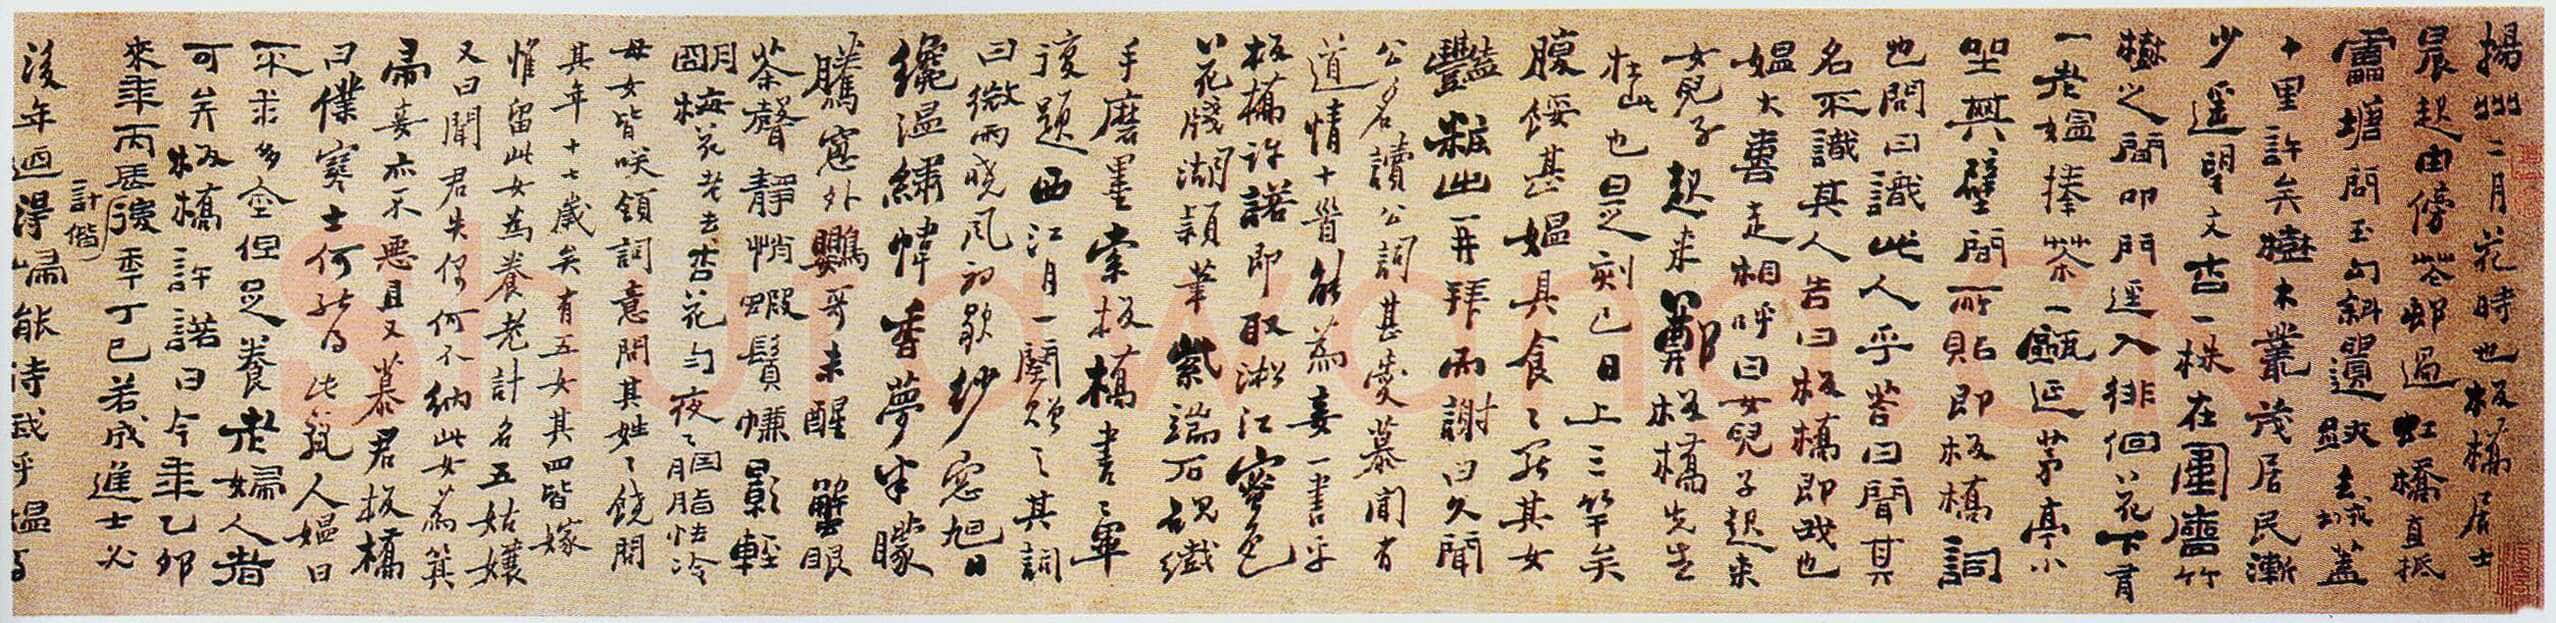 揚州二月花時也板橋居士
晨起由傍花邨過虹橋直抵
雷塘問玉勾斜遺跡去城蓋
十里許矣樹木叢茂居民漸
少遥望文杏一株在圍牆竹
樹之間叩門逕入徘徊花下有
一老媼捧茶一甌延茅亭小
坐其壁間所貼即板橋詞
也問曰識此人乎荅曰聞其
名不識其人告曰板橋即我也
媼大喜走相呼曰女兒子起來
女兒子起來鄭板橋先生
在此也是刻已日上三竿矣
腹餒甚媼具食食罷其女
豔粧出再拜而謝曰久聞
公名讀公詞甚愛慕聞有
道情十首能爲妾一書乎
板橋許諾即取淞江蜜色
花牋湖潁筆紫端石硯纖
手磨墨索板橋書書畢
復題西江月一闋贈之其詞
曰微雨曉風初歇紗窓旭日
纔温繡幃香夢半朦
騰窓外鸚哥未醒 蟹眼
茶聲靜悄蝦鬚幙影輕
明梅花老去杏花勻夜夜胭脂怯冷
母女皆咲領詞意問其姓姓饒問
其年十七歲矣有五女其四皆嫁
惟留此女爲養老計名五姑孃
又曰聞君失偶何不納此女爲箕
帚妾亦不惡且又慕君板橋
曰僕寒士何能得此麗人媼曰
不求多金但足養老婦人者
可矣板橋許諾曰今年乙卯
來年丙辰計偕後年丁巳若成進士必
後年迺得歸能待我乎媼與
Shufawang.CN